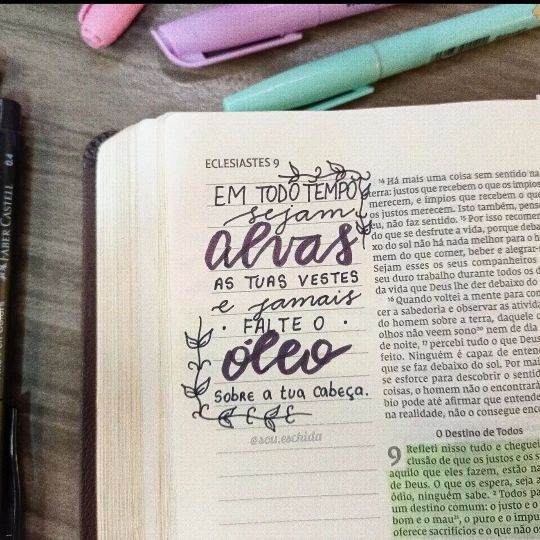 FABER CASTELL 0.4
ECLESIASTES 9
EM TODO TEMPO
sejam
alvas
AS TUAS VESTES
e jamais
· FALTE O ·
óleo
SOBRE A TUA CABEÇA.
@sou.eschida
¹⁴ Há mais uma coisa sem sentido na
terra: justos que recebem o que os ímpios
merecem, e ímpios que recebem o que
os justos merecem. Isto também, penso
eu, não faz sentido. ¹⁵ Por isso recomen
do que se desfrute a vida, porque deba
xo do sol não há nada melhor para o h
mem do que comer, beber e alegrar-
Sejam esses os seus companheiros
seu duro trabalho durante todos os d
da vida que Deus lhe der debaixo do
¹⁶ Quando voltei a mente para con
cer a sabedoria e observar as ativida
do homem sobre a terra, daquele c
olhos não veem sono²⁰ nem de dia
de noite, ¹⁷ percebi tudo o que Deus
feito. Ninguém é capaz de enten
que se faz debaixo do sol. Por mai
se esforce para descobrir o sentid
coisas, o homem não o encontrará
bio pode até afirmar que entende
na realidade, não o consegue enco
O Destino de Todos
9 Refleti nisso tudo e cheguei
clusão de que os justos e os s
aquilo que eles fazem, estão na
de Deus. O que os espera, seja a
ódio, ninguém sabe. ² Todos pa
um destino comum: o justo e o
bom e o mau²¹, o puro e o impu
oferece sacrifícios e o que não o